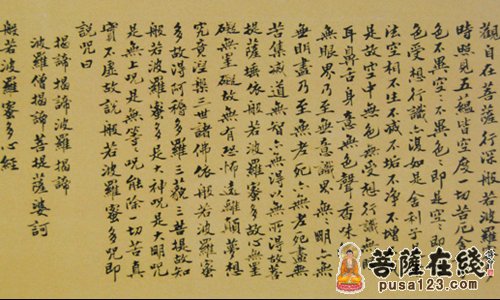 觀自在菩薩行深般若波羅
時照見五蘊皆空度一切苦厄舍
色不異空〻不異色〻即是空〻即
色受想行識亦復如是舍利子
法空相不生不滅不垢不淨不增
是故空中無色無受想行識無
耳鼻舌身意無色聲香味
無眼界乃至無意識界無無明亦無
無明盡乃至無老死亦無老死盡無
苦集滅道無智亦無得以無所得故菩
提薩埵依般若波羅蜜多故心無罣
礙無罣礙故無有恐怖遠離顛倒夢想
究竟涅槃三世諸佛依般若波羅蜜
多故得阿耨多羅三藐三菩提故知
般若波羅蜜多是大神咒是大明咒
是無上咒是無等〻咒能除一切苦真
實不虛故說般若波羅蜜多咒即
說咒曰
揭諦揭諦波羅揭諦
波羅僧揭諦菩提薩婆訶
般若波羅蜜多心經
菩薩在綫
pusa123.com